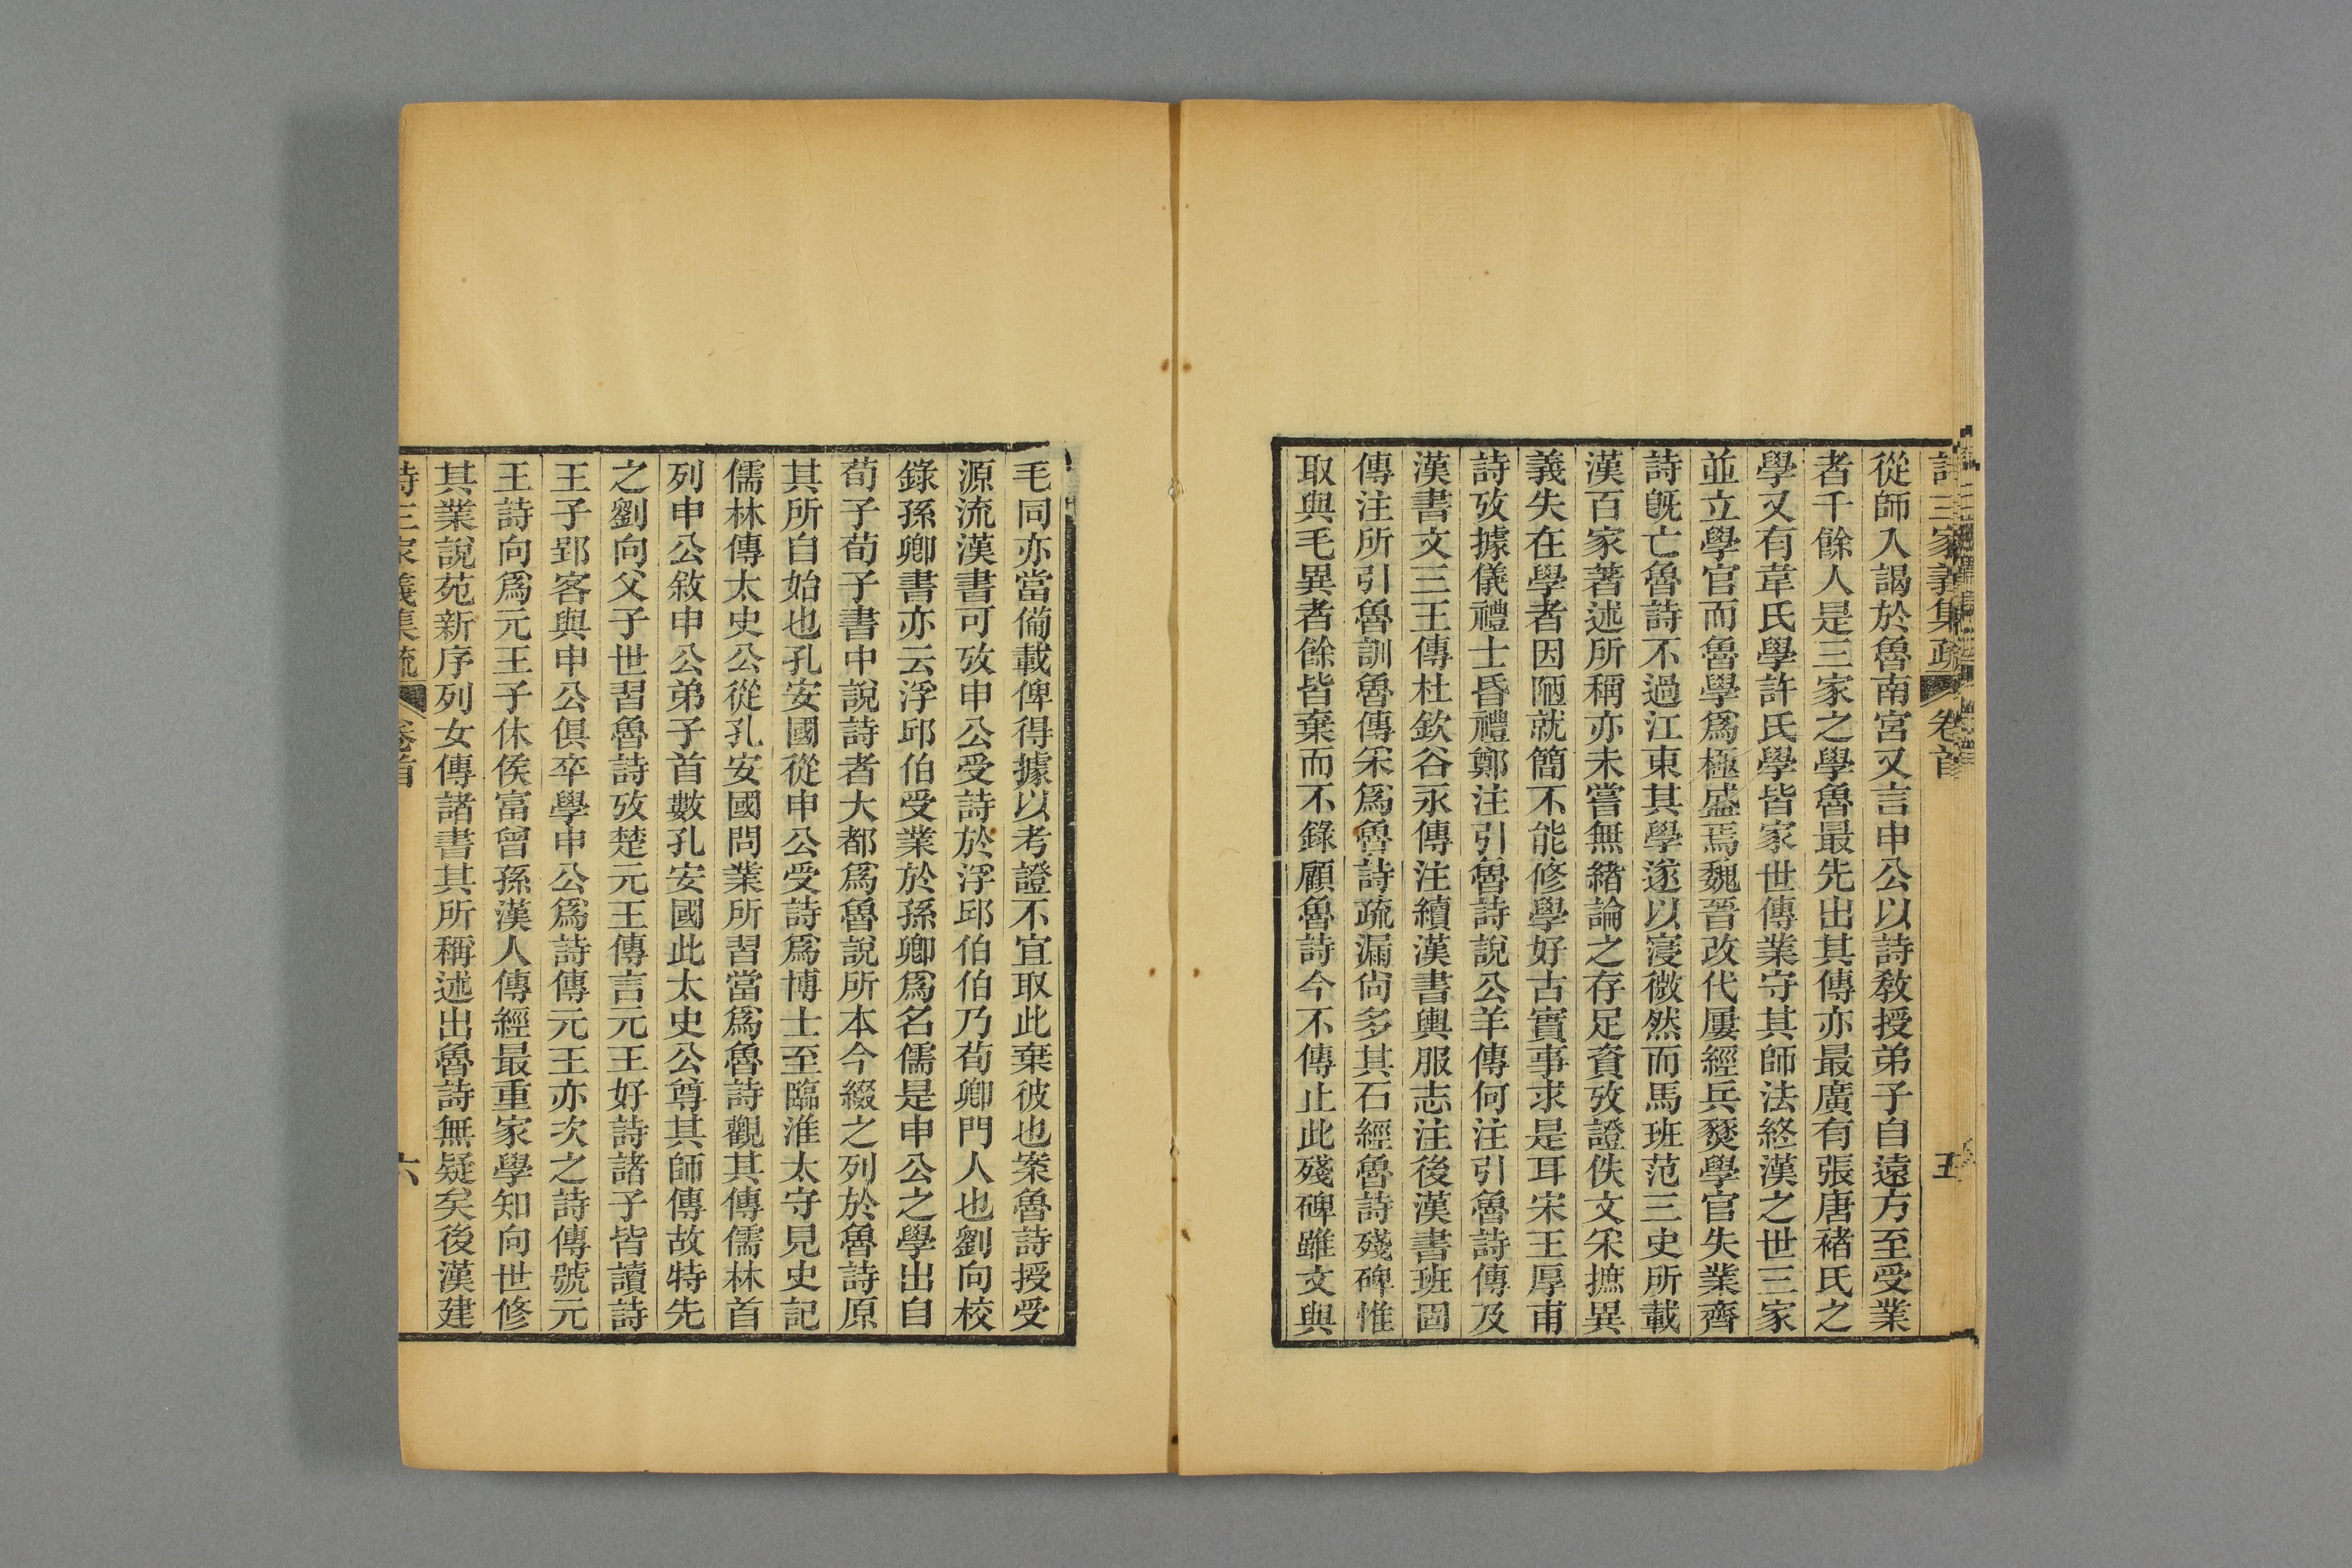 詩三家義集疏 卷首 五
從師入謁於魯南宮又言申公以詩敎授弟子自遠方至受業
者千餘人是三家之學魯最先出其傳亦最廣有張唐褚氏之
學又有韋氏學許氏學皆家世傳業守其師法終漢之世三家
並立學官而魯學爲極盛焉魏晉改代屢經兵燹學官失業齊
詩旣亡魯詩不過江東其學遂以寖微然而馬班范三史所載
漢百家著述所稱亦未嘗無緒論之存足資攷證佚文采摭異
義失在學者因陋就簡不能修學好古實事求是耳宋王厚甫
詩攷據儀禮士昏禮鄭注引魯詩說公羊傳何注引魯詩傳及
漢書文三王傳杜欽谷永傳注續漢書輿服志注後漢書班固
傳注所引魯訓魯傳采爲魯詩疏漏尙多其石經魯詩殘碑惟
取與毛異者餘皆棄而不錄顧魯詩今不傳止此殘碑雖文與
毛同亦當備載俾得據以考證不宜取此棄彼也案魯詩授受
源流漢書可攷申公受詩於浮邱伯伯乃荀卿門人也劉向校
錄孫卿書亦云浮邱伯受業於孫卿爲名儒是申公之學出自
荀子荀子書中說詩者大都爲魯說所本今綴之列於魯詩原
其所自始也孔安國從申公受詩爲博士至臨淮太守見史記
儒林傳太史公從孔安國問業所習當爲魯詩觀其傳儒林首
列申公敘申公弟子首數孔安國此太史公尊其師傳故特先
之劉向父子世習魯詩攷楚元王傳言元王好詩諸子皆讀詩
王子郢客與申公俱卒學申公爲詩傳元王亦次之詩傳號元
王詩向爲元王子休侯富曾孫漢人傳經最重家學知向世修
其業說苑新序列女傳諸書其所稱述出魯詩無疑矣後漢建
詩三家義集疏 卷首 六